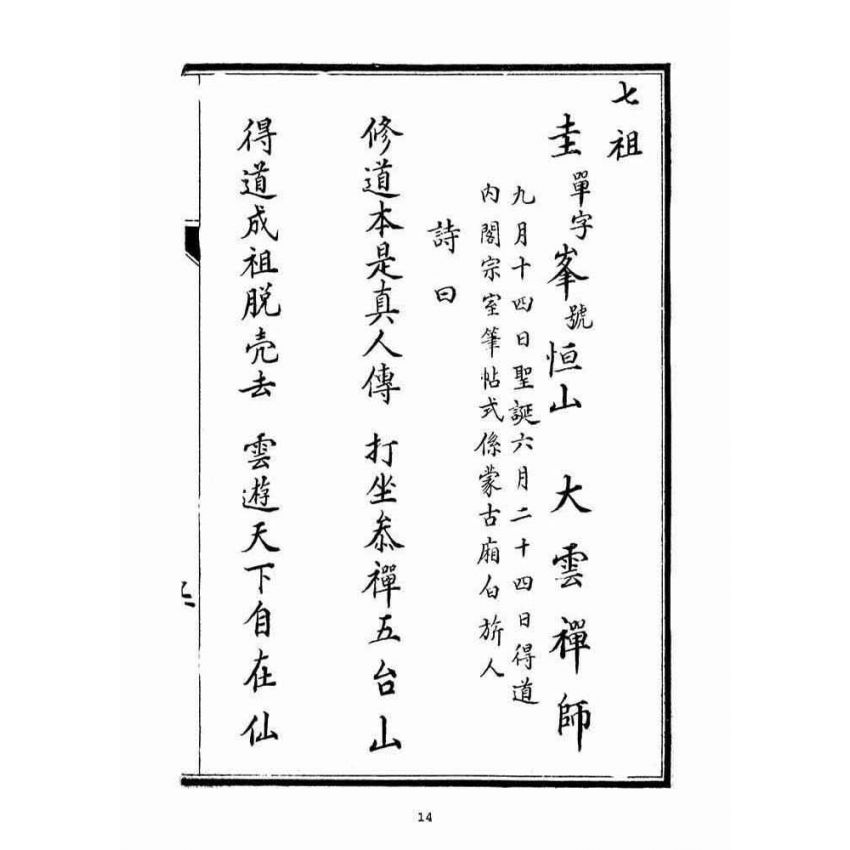 七祖
圭單字峯號恒山 大雲禪師
九月十四日聖誕六月二十四日得道
内閣宗室筆帖式係蒙古廂白旂人
詩曰
修道本是真人傳 打坐叅禪五台山
得道成祖脱壳去 雲遊天下自在仙
14